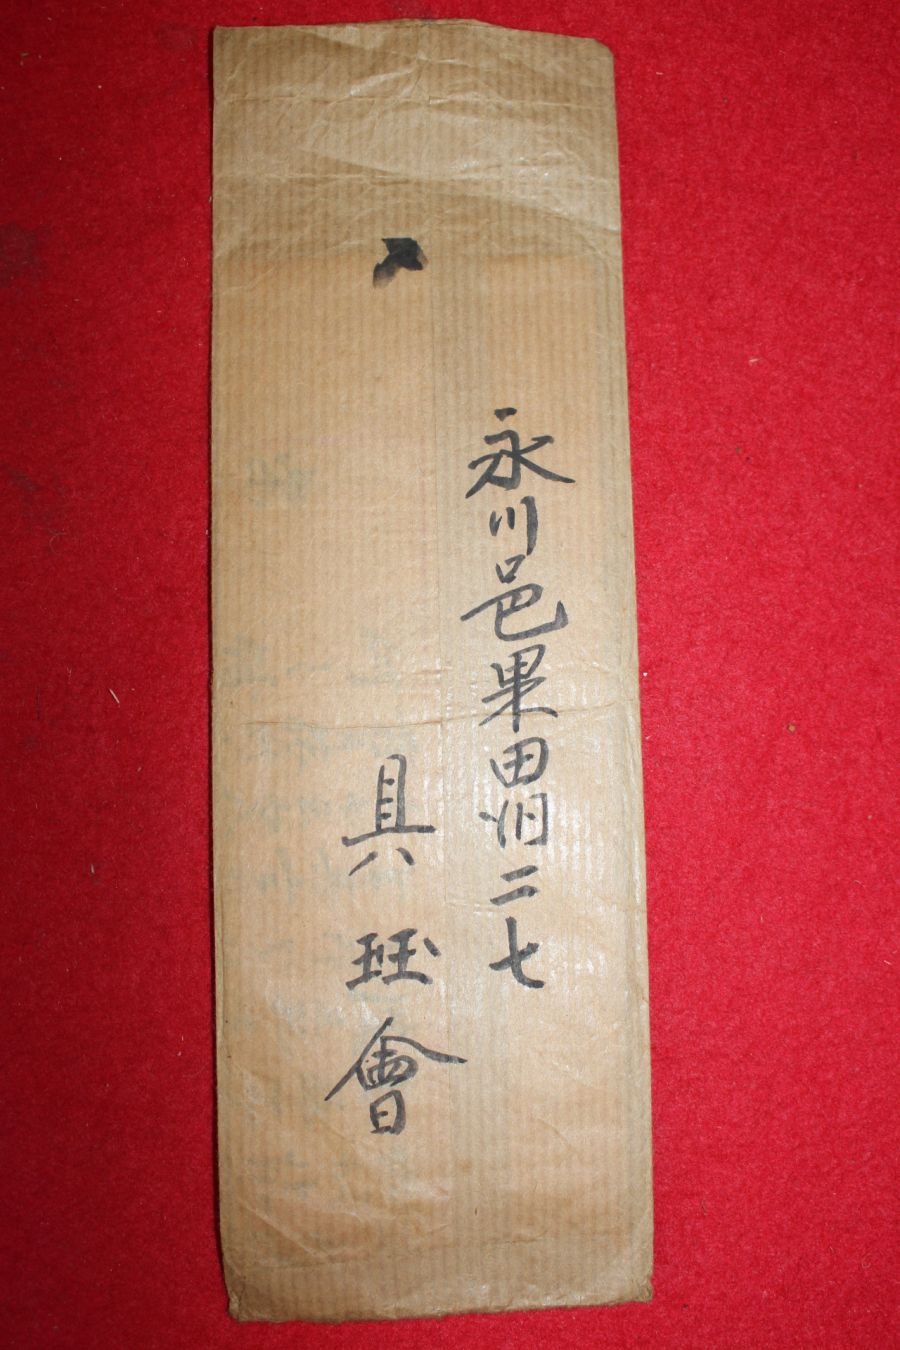 永川邑果田洞二七
具珏會